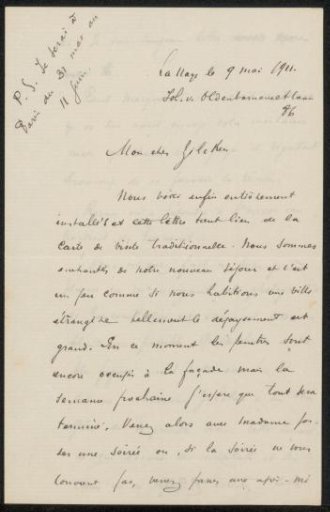 P.S. Je serai à
Paris du 31 mai au
11 juin.
La Haye le 9 mai 1911.
Joh. v. Oldenbarneveltlaan
86
Mon cher Zilcken,
Nous voici enfin entièrement
installés et cette lettre tient lieu de la
carte de visite traditionnelle. Nous sommes
enchantés de notre nouveau séjour et c'est
un peu comme si nous habitions une ville
étrangère tellement le dépaysement est
grand. En ce moment les peintres sont
encore occupés à la façade mais la
semaine prochaine j'espère que tout sera
terminé. Venez alors avec madame pas-
ser une soirée ou, si la soirée ne vous
convient pas, venez passer une après-mi